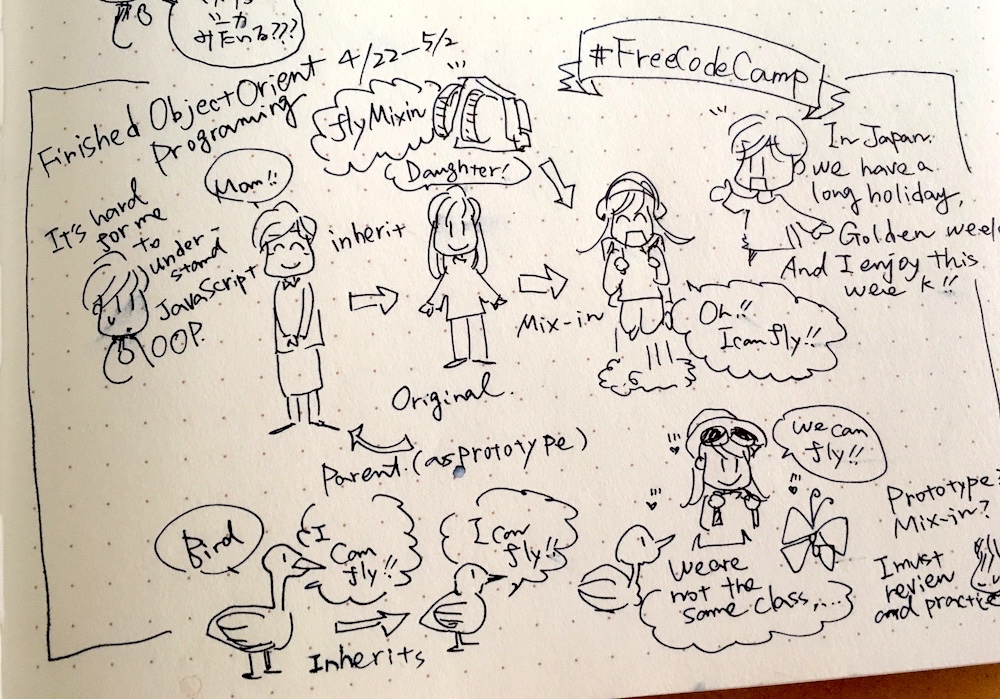 みたいな???
#FreeCodeCamp
4/22-5/2
Finished Object Orient
programing
fly Mixin
Mom!!
Daughter!
It's hard
for me
to
under-
stand
JavaScript
OOP.
inherit
Mix-in
Original.
Parent. (as prototype)
In Japan.
we have a
long holiday,
Golden week
And I enjoy this
week!!
Oh!!
I can fly!!
Bird
I
can
fly!!
I can
fly!!
Inherits
We can
fly!!
We are
not the
same class,....
Prototype?
Mix-in?
I must
review
and practice